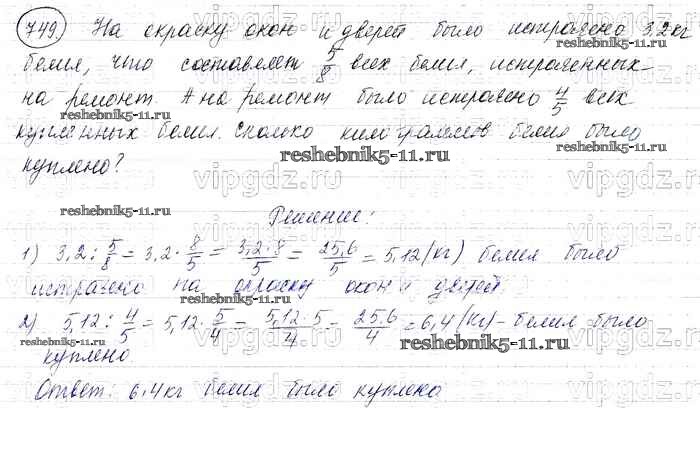 749. На окраску окон и дверей было истрачено 3,2 кг
белил, что составляет 5/8 всех белил, истраченных
на ремонт. А на ремонт было истрачено 4/5 всех
купленных белил. Сколько килограммов белил было
куплено?
Решение:
1) 3,2 : 5/8 = 3,2 · 8/5 = 3,2·8/5 = 25,6/5 = 5,12 (кг) белил было
истрачено на окраску окон и дверей.
2) 5,12 : 4/5 = 5,12 · 5/4 = 5,12·5/4 = 25,6/4 = 6,4 (кг) - белил было
куплено.
Ответ: 6,4 кг белил было куплено
reshebnik5-11.ru
vipgdz.ru